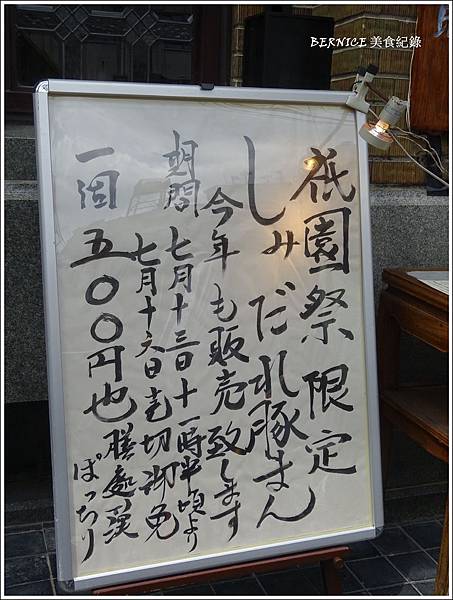 BERNICE 美食紀錄
祇園祭限定
しみだれ豚まん
今年も販売致します
期間 七月十三日十一時半頃より
七月十六日売切御免
一個 五〇〇円也
膳處漢
ぽっちり